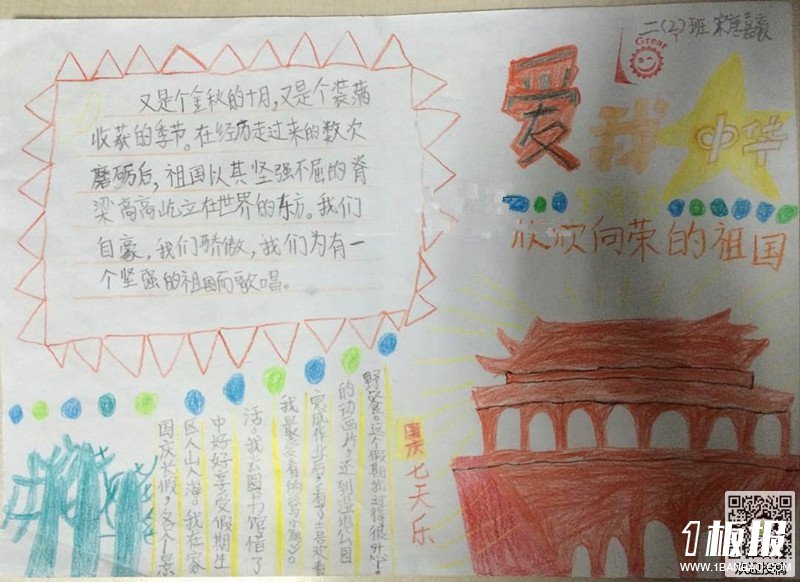 二(2)班
Great
爱我中华
欣欣向荣的祖国
又是个金秋的十月,又是个装满
收获的季节。在经历走过来的数次
磨砺后,祖国以其坚强不屈的脊
梁高高屹立在世界的东方。我们
自豪,我们骄傲,我们为有一
个坚强的祖国而歌唱。
国庆七天乐
国庆长假,各个景
区人山人海,我在家
中好好享受假期生
活。我去图书馆借了
我最爱看的
完成作业后,看了喜欢看
的动画片,还到湿地公园
野餐。这个假期我过得很开心。
1板报
WWW.1BANBAO.COM